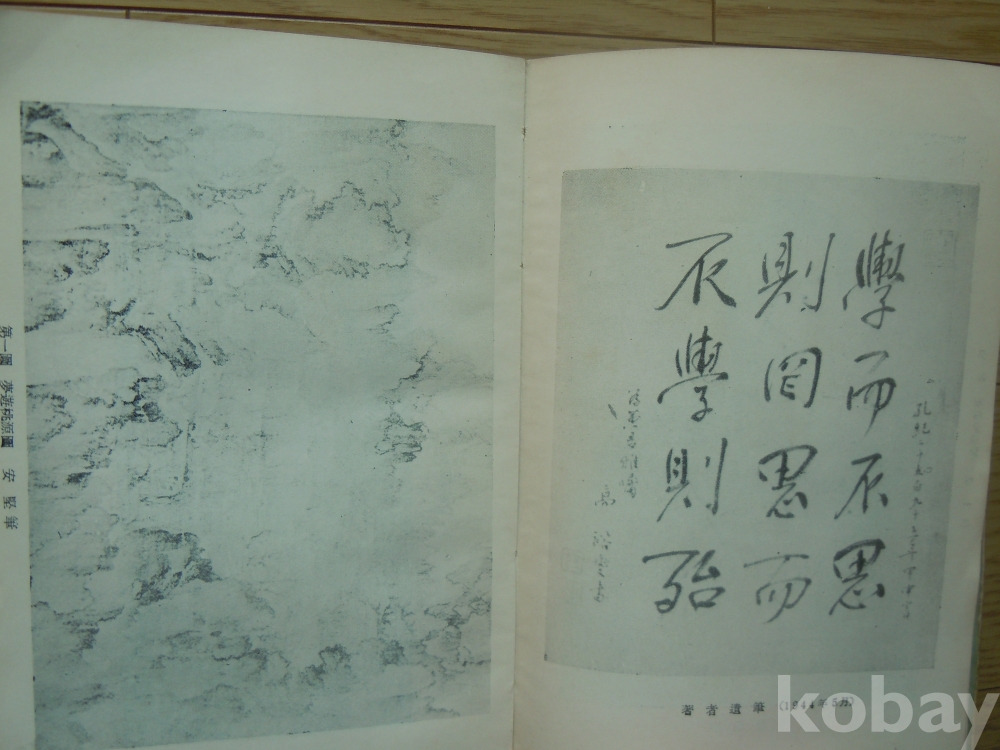 學而不思
則罔思而
不學則殆
著者遺筆 (1944年5月)
第一圖 夢遊桃源圖 安堅筆
kobay